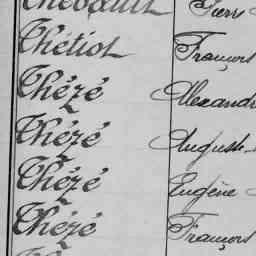 Thébault Pierr
Thétiot François
Thézé Alexandr
Thézé Auguste
Thézé Eugène
Thézé François